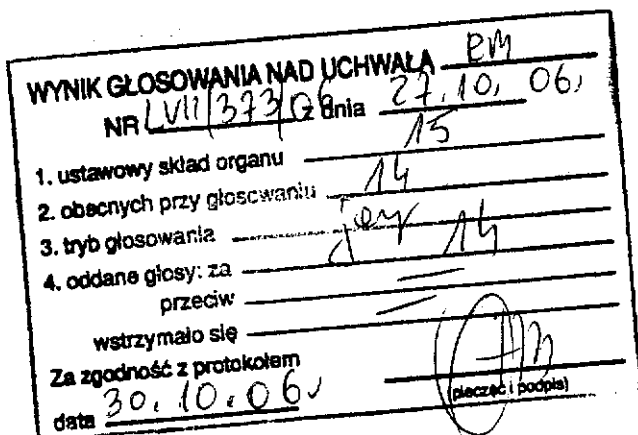 WYNIK GŁOSOWANIA NAD UCHWAŁĄ em
NR LVII/373/06 z dnia 27.10.06.
1. ustawowy skład organu 15
2. obecnych przy głosowaniu 14
3. tryb głosowania jawny
4. oddane głosy: za 14
przeciw =
wstrzymało się =
Za zgodność z protokołem
data 30.10.06.
(pieczęć i podpis)